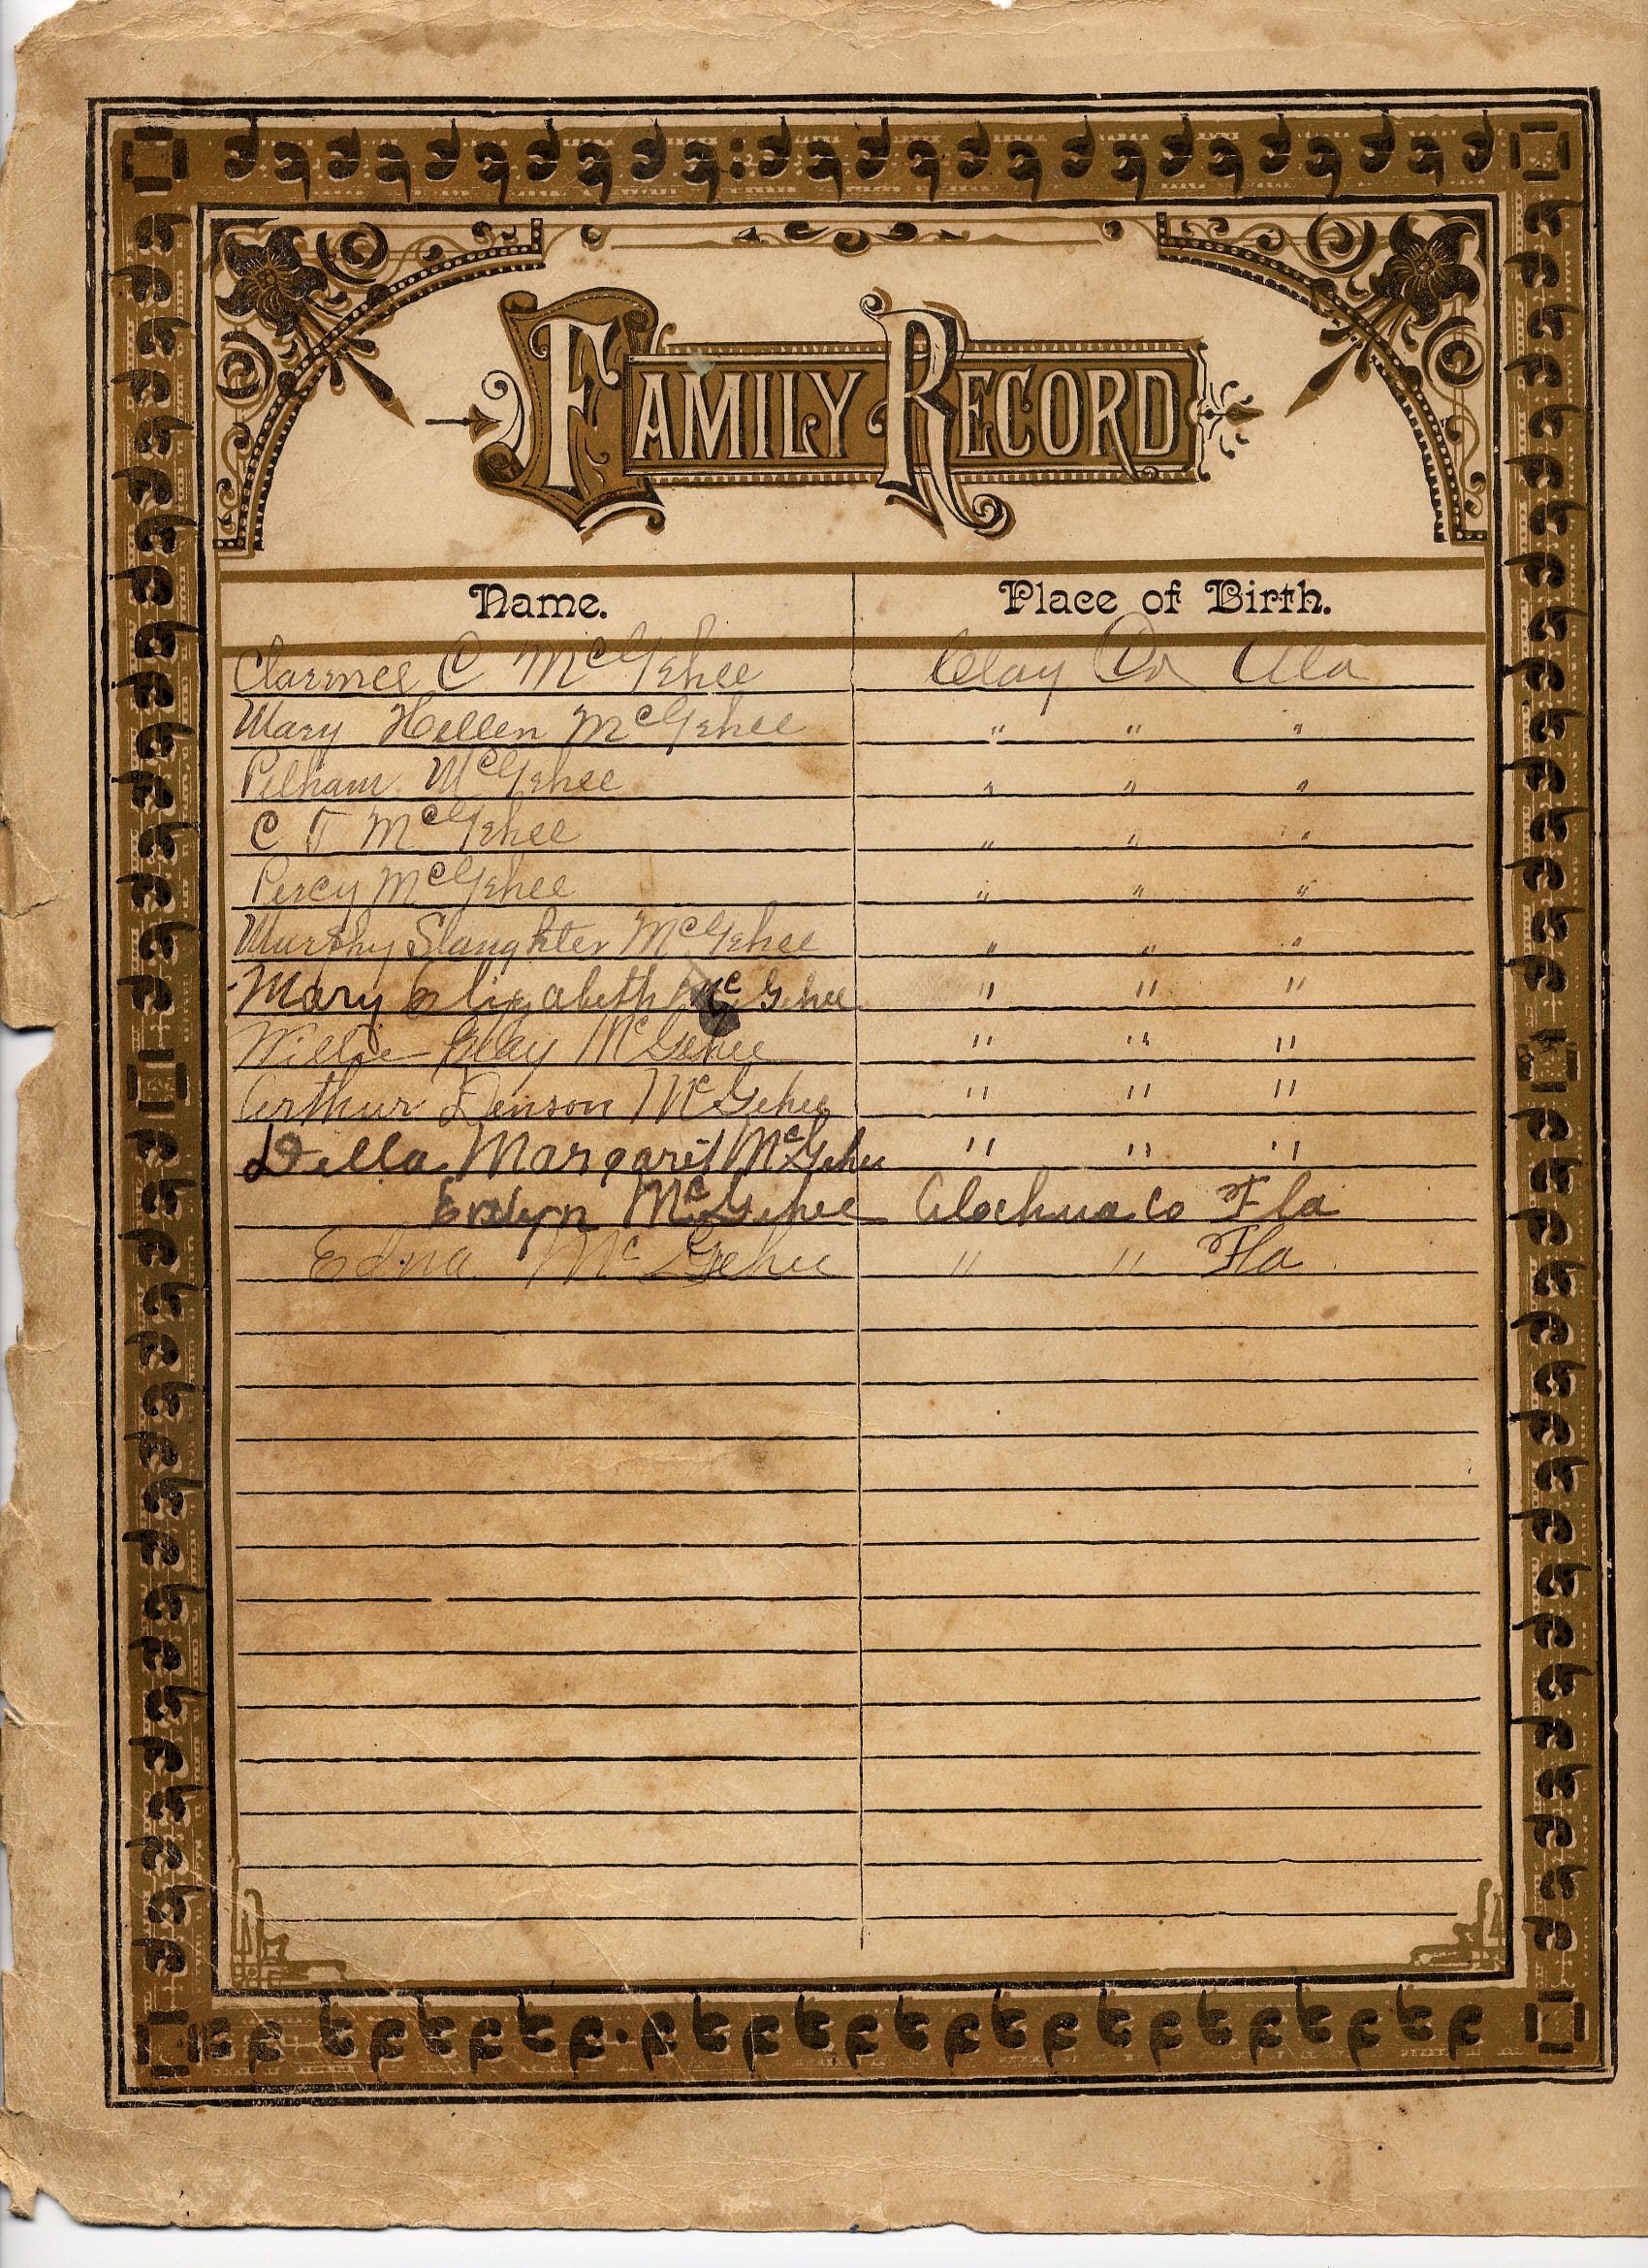 FAMILY RECORD
Name. Place of Birth.
Clarence C McGehee Clay Co Ala
Mary Hellen McGehee " " "
Pelham McGehee " " "
C T McGehee " " "
Percy McGehee " " "
Murphy Slaughter McGehee " " "
Mary Elizabeth McGehee " " "
Willie Clay McGehee " " "
Arthur Denson McGehee " " "
Della Margaret McGehee " " "
Evelyn McGehee Alochua Co Fla
Edna McGehee " " Fla